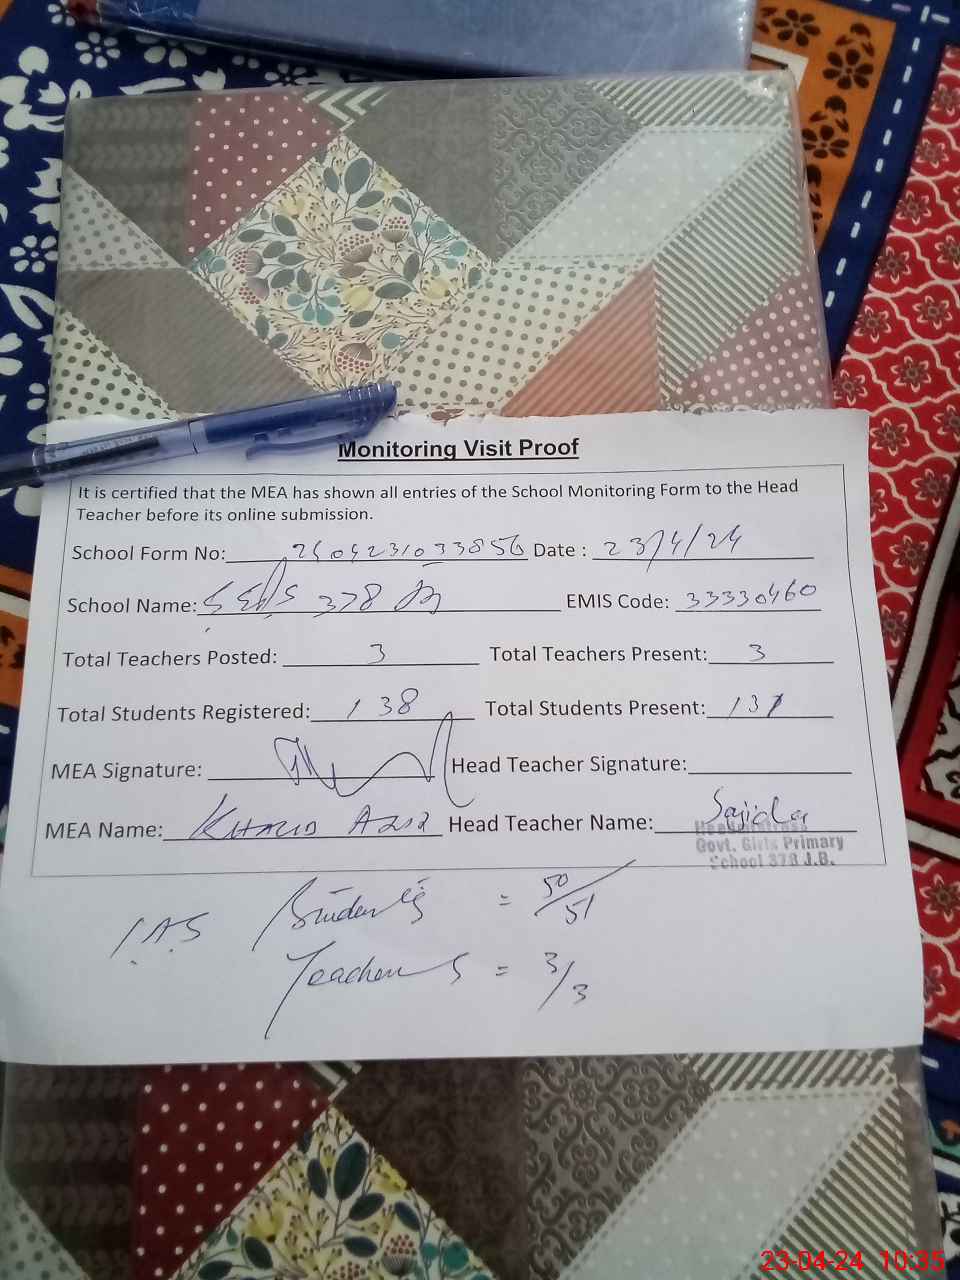 Monitoring Visit Proof
It is certified that the MEA has shown all entries of the School Monitoring Form to the Head
Teacher before its online submission.
School Form No: Date : 23/4/24
School Name: 378 EMIS Code: 33330460
Total Teachers Posted: 3 Total Teachers Present: 3
Total Students Registered: 138 Total Students Present: 131
MEA Signature: Head Teacher Signature:
MEA Name: Khalid Aziz Head Teacher Name: Sajida
Headmistress
Govt. Girls Primary
School 378 J.B.
Students = 50/51
Teachers = 3/3
23-04-24 10:35